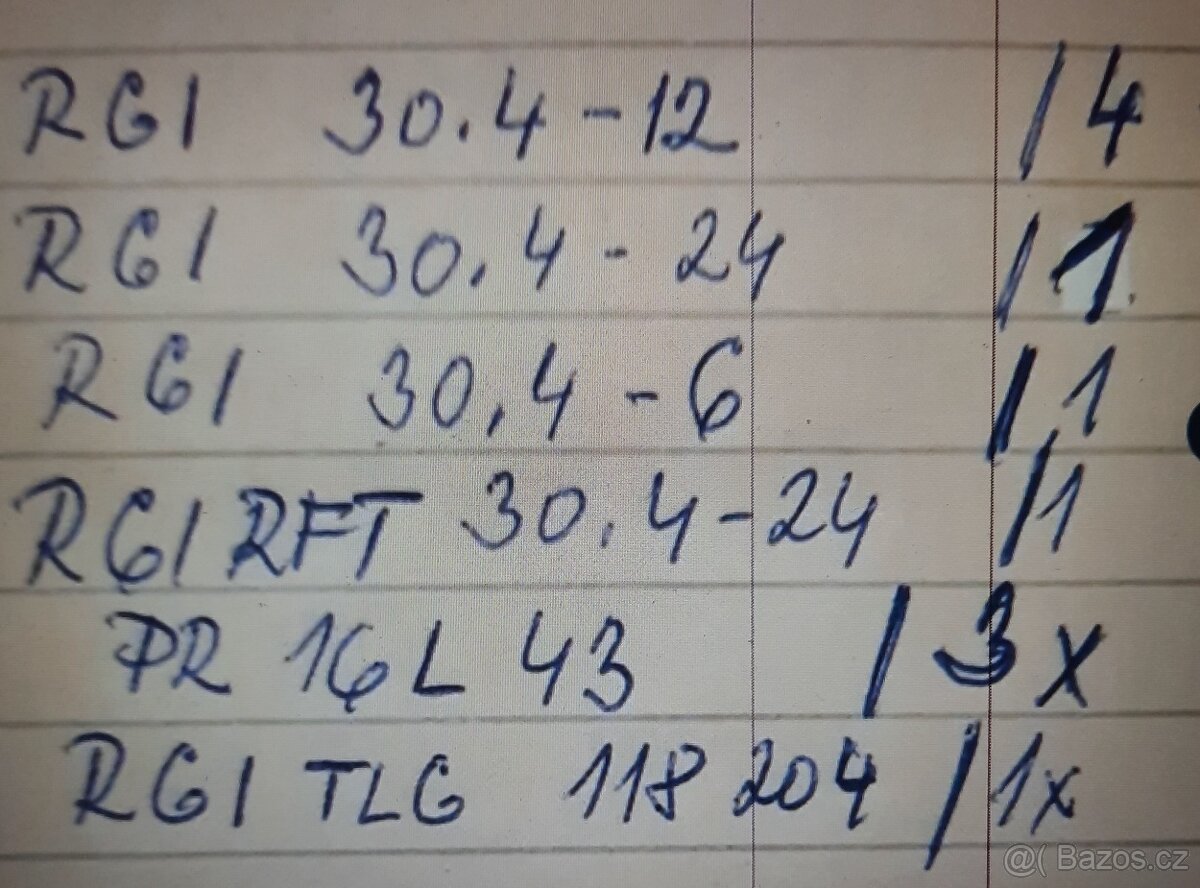 RGI 30.4-12 /4
RGI 30.4-24 /1
RGI 30.4-6 /1
RGI RFT 30.4-24 /1
PR 16 L 43 / 3x
RGI TLG 118 204 / 1x
@( Bazos.cz